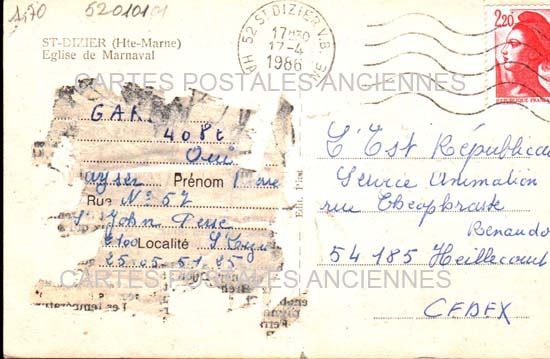 1,70 52010101
ST-DIZIER (Hte-Marne)
Eglise de Marnaval
52 ST DIZIER V.B.
17H30
17-4
1986
HTE MARNE
2,20
REPUBLIQUE FRANCAISE
CARTES POSTALES ANCIENNES
GAR
408t
Oui
Prénom
Rue N° 57
St John Perse
2100 Localité St Dizi
25.05.51.25
Edit. Pist
L'Est Républicain
Service Animation
rue Théophraste
Renaudot
54 185 Heillecourt
CARTES POSTALES ANCIENNES
CEDEX